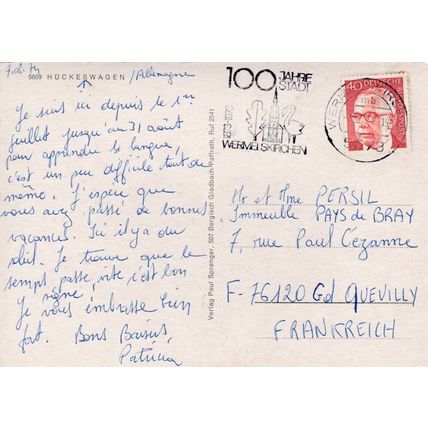 5609 HÜCKESWAGEN /Allemagne
Je suis ici depuis le 1er
juillet jusqu'au 31 août
pour apprendre la langue,
c'est un peu difficile tout de
même. J'espère que
vous avez passé de bonnes
vacances. Ici il y a du
soleil. Je trouve que le
temps passe vite c'est bon
signe.
Je vous embrasse bien
fort. Bons Baisers,
Patricia
Verlag Paul Sprenger, 507 Bergisch Gladbach-Paffrath, Ruf 2541
100 JAHRE
STADT
1873-1973
WERMELSKIRCHEN
40
DEUTSCHE BUNDESPOST
Mr et Mme PERSIL
Immeuble PAYS de BRAY
7, rue Paul Cézanne
F-76120 Gd QUEVILLY
FRANKREICH